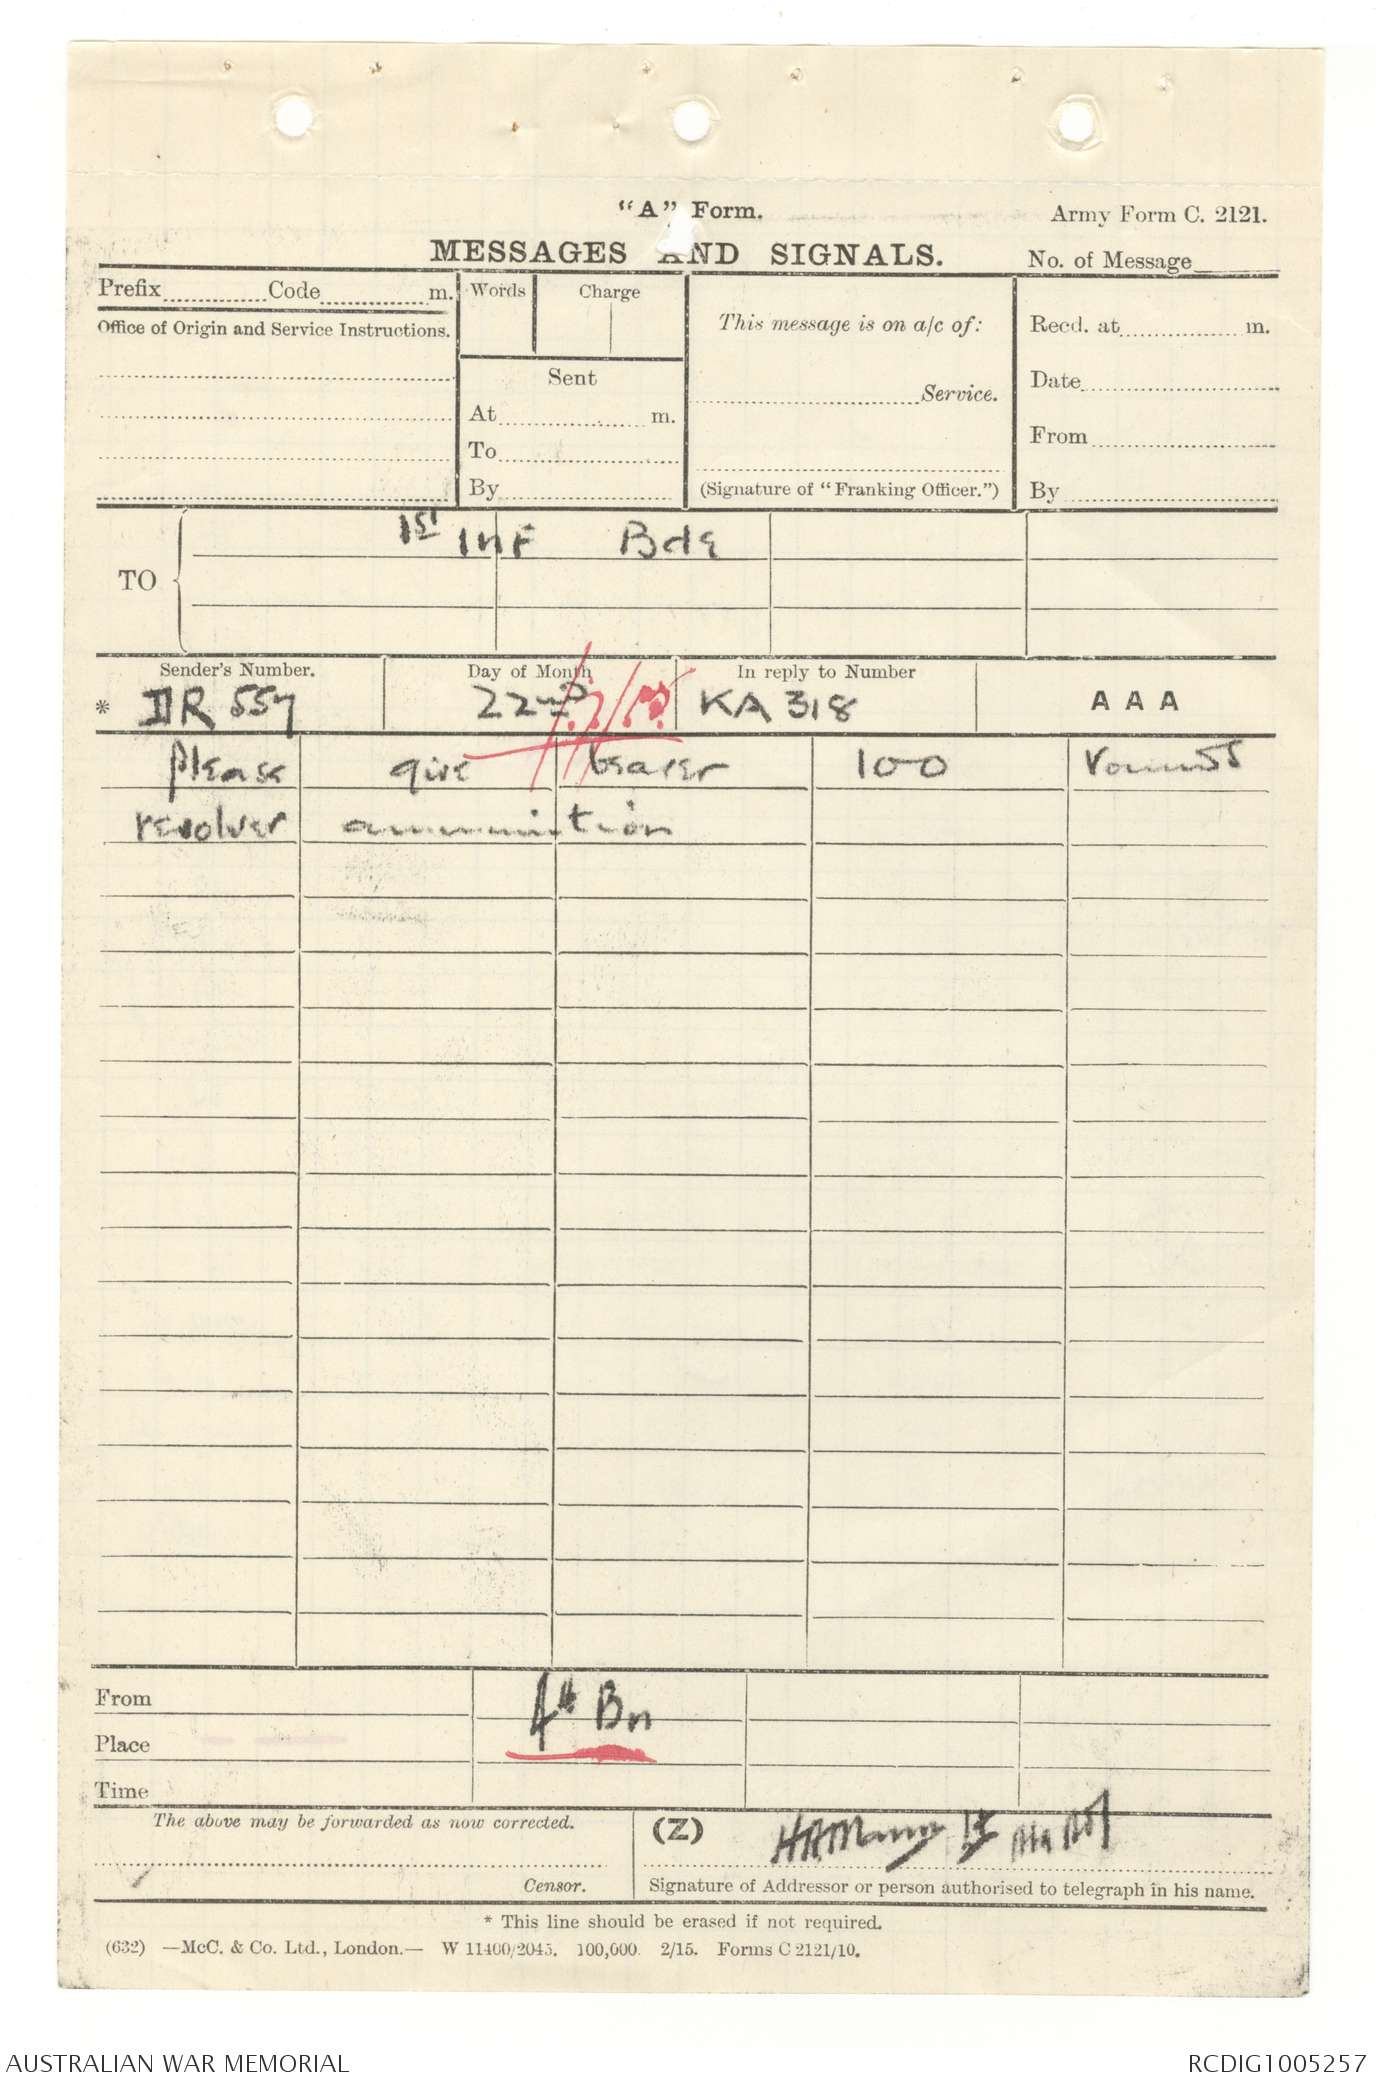 "A" Form.
Army Form C. 2121.
MESSAGES AND SIGNALS.
No. of Message
Prefix Code m.
Words
Charge
This message is on a/c of:
Recd. at m.
Office of Origin and Service Instructions.
Sent
Date
Service.
At m.
From
To
By
(Signature of "Franking Officer.")
By
TO
1st Inf Bde
Sender's Number.
Day of Month
In reply to Number
* DR 557
22nd /7/15
KA 318
A A A
please give bearer 100 rounds
revolver ammunition
From
4th Bn
Place
Time
The above may be forwarded as now corrected.
(Z)
Lt
Censor.
Signature of Addressor or person authorised to telegraph in his name.
* This line should be erased if not required.
(632) —McC. & Co. Ltd., London.— W 11400/2045. 100,000. 2/15. Forms C 2121/10.
AUSTRALIAN WAR MEMORIAL
RCDIG1005257